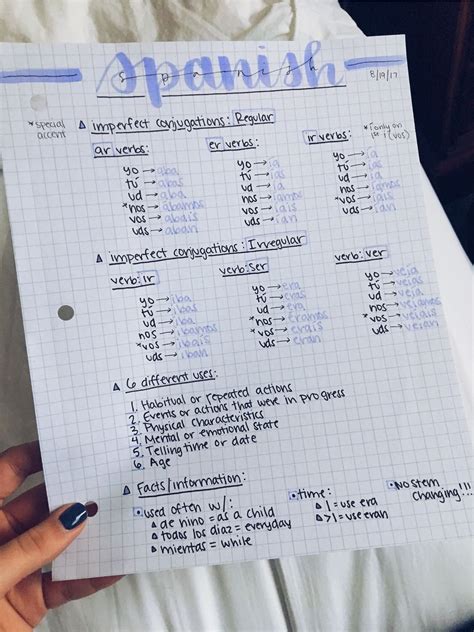 spanish
spanish
8/19/17
*special accent
△ imperfect conjugations: Regular
*(only on 1st i (vos)
ar verbs:
yo → aba
tú → abas
ud → aba
*nos → abamos
vos → abais
uds → aban
er verbs:
yo → ia
tú → ias
ud → ia
nos → iamos
vos → iais
uds → ian
ir verbs:
yo → ia
tú → ias
ud → ia
nos → iamos
vos → iais
uds → ian
△ imperfect conjugations: Irregular
verb: ir
yo → iba
tú → ibas
ud → iba
nos → ibamos
*vos → ibais
uds → iban
verb: ser
yo → era
tú → eras
ud → era
*nos → eramos
*vos → erais
uds → eran
verb: ver
yo → veia
tú → veias
ud → veia
nos → veiamos
*vos → veiais
uds → veian
△ 6 different uses:
1. Habitual or repeated actions
2. Events or actions that were in progress
3. Physical characteristics
4. Mental or emotional state
5. Telling time or date
6. Age
△ Facts/information:
• used often w/:
△ de nino = as a child
△ todos los diaz = everyday
△ mientas = while
• time:
△ 1 = use era
△ >1 = use eran
• NO stem
changing!!!